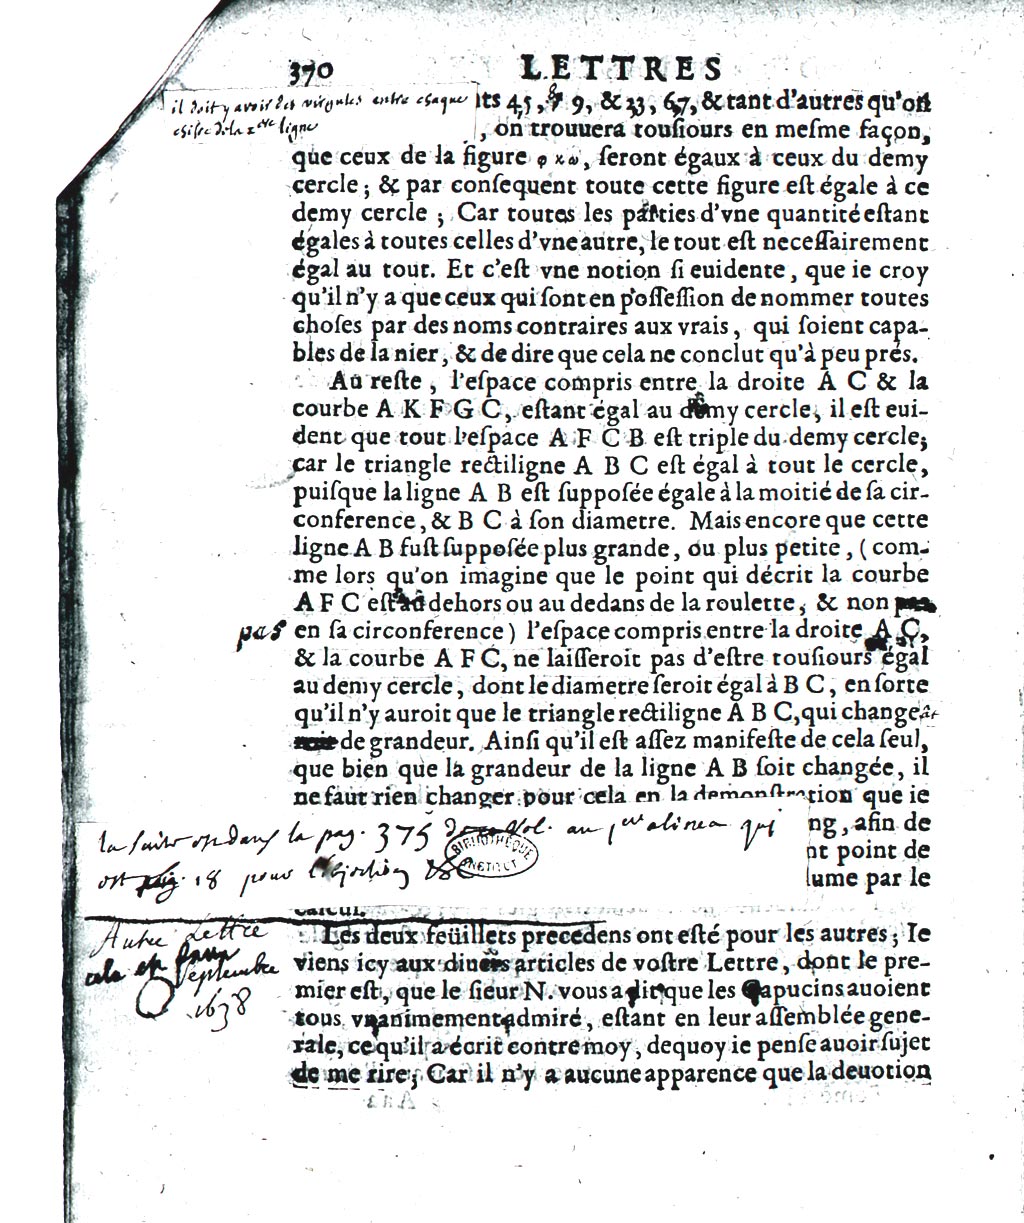 370 LETTRES
il doit y avoir des virgules entre chaque
chifre de la 1ere ligne
its 4,5, 9, & 33, 6,7, & tant d'autres qu'on
, on trouuera touſiours en meſme façon,
que ceux de la figure φ χ ω, ſeront égaux à ceux du demy
cercle; & par conſequent toute cette figure eſt égale à ce
demy cercle; Car toutes les parties d'vne quantité eſtant
égales à toutes celles d'vne autre, le tout eſt neceſſairement
égal au tout. Et c'eſt vne notion ſi euidente, que ie croy
qu'il n'y a que ceux qui ſont en poſſeſſion de nommer toutes
choſes par des noms contraires aux vrais, qui ſoient capa-
bles de la nier, & de dire que cela ne conclut qu'à peu prés.
Au reſte, l'eſpace compris entre la droite A C & la
courbe A K F G C, eſtant égal au demy cercle, il eſt eui-
dent que tout l'eſpace A F C B eſt triple du demy cercle;
car le triangle rectiligne A B C eſt égal à tout le cercle,
puiſque la ligne A B eſt ſuppoſée égale à la moitié de ſa cir-
conference, & B C à ſon diametre. Mais encore que cette
ligne A B fuſt ſuppoſée plus grande, ou plus petite, (com-
me lors qu'on imagine que le point qui décrit la courbe
A F C eſt au dehors ou au dedans de la roulette, & non
pas en ſa circonference) l'eſpace compris entre la droite A C,
& la courbe A F C, ne laiſſeroit pas d'eſtre touſiours égal
au demy cercle, dont le diametre ſeroit égal à B C, en ſorte
qu'il n'y auroit que le triangle rectiligne A B C, qui changeât
de grandeur. Ainſi qu'il eſt aſſez manifeſte de cela ſeul,
que bien que la grandeur de la ligne A B ſoit changée, il
ne faut rien changer pour cela en la demonſtration que ie
la suite est dans la pag. 375 au 1er alinea qui
ng, afin de
est 18 pour
nt point de
BIBLIOTHEQUE INSTITUT
lume par le
calcul.
Autre Lettre
Septembre
1638
Les deux feüillets precedens ont eſté pour les autres; Ie
viens icy aux diuers articles de voſtre Lettre, dont le pre-
mier eſt, que le ſieur N. vous a dit que les Capucins auoient
tous vnanimement admiré, eſtant en leur aſſemblée gene-
rale, ce qu'il a écrit contre moy, dequoy ie penſe auoir ſujet
de me rire; Car il n'y a aucune apparence que la deuotion